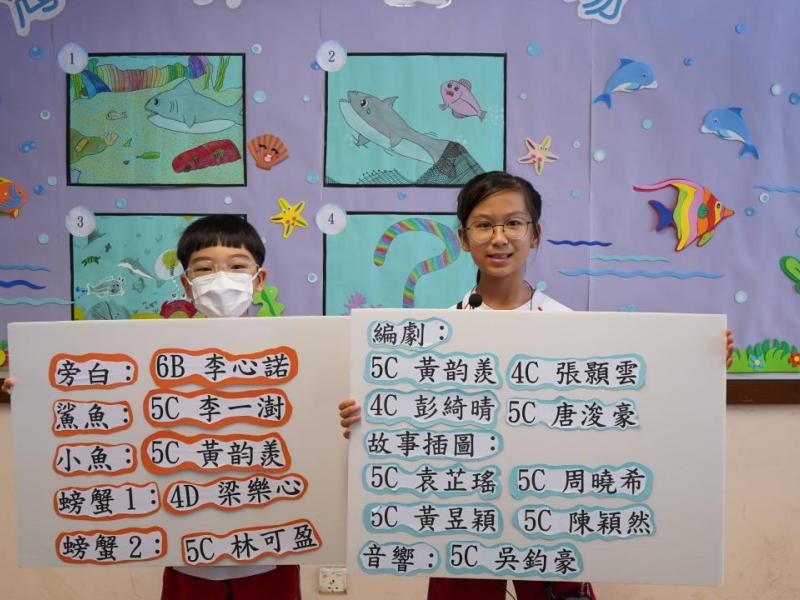 1
2
3
4
旁白: 6B 李心諾
鯊魚: 5C 李一澍
小魚: 5C 黃韵羨
螃蟹1: 4D 梁樂心
螃蟹2: 5C 林可盈
編劇:
5C 黃韵羨 4C 張顥雲
4C 彭綺晴 5C 唐浚豪
故事插圖:
5C 袁芷瑤 5C 周曉希
5C 黃昱穎 5C 陳穎然
音響: 5C 吳鈞豪